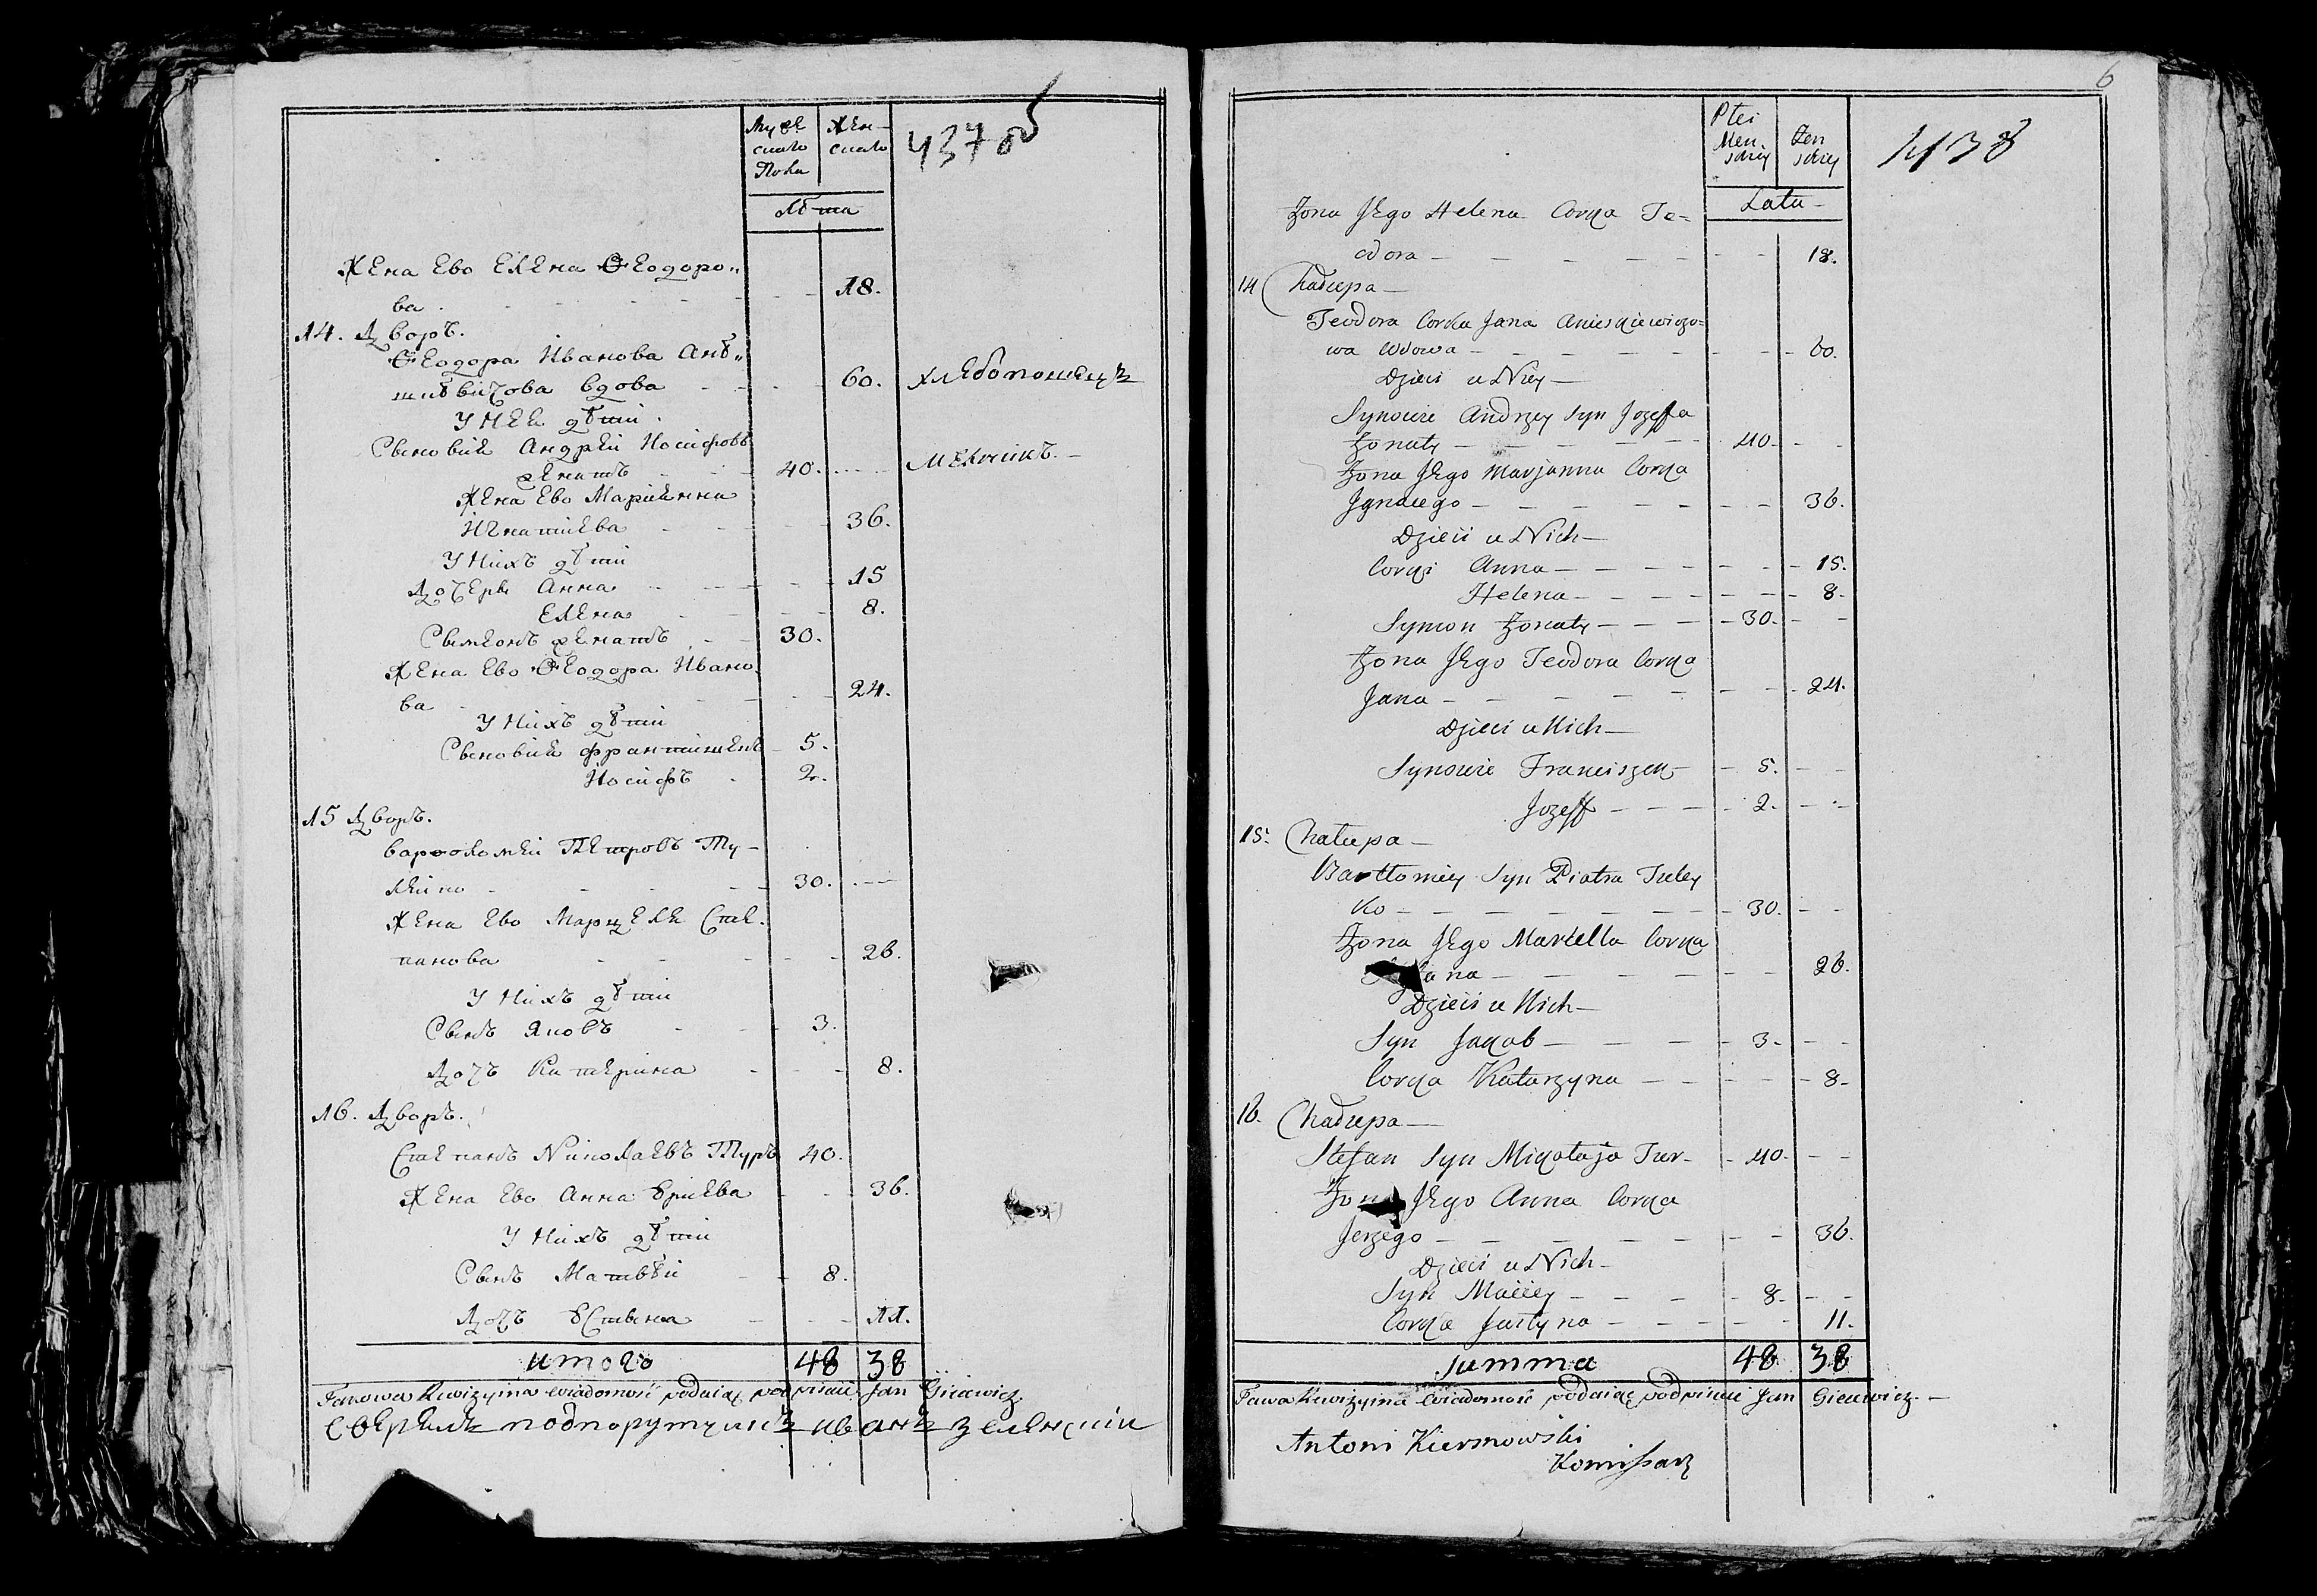 Муже
скаго
Пола
Жен-
скаго
4378
Лѣта
Жена Ево Елена Ѳеодоро„
ва 18.
14. Дворъ.
Ѳеодора Иванова Анѣ„
шкѣвичова вдова 60.
У Неи дѣти
Сыновия Андрей Иосифовъ
женатъ 40.
Жена Ево Мариянна
Игнатиева 36.
У Нихъ дѣти
Дочерь Анна 15
Елена 8.
Сымеонъ женатъ 30.
Жена Ево Ѳеодора Ивано
ва 24.
У Нихъ дѣти
Сыновия Францишекъ 5.
Иосифъ 2.
15 Дворъ.
Варѳоломей Петровъ Ту-
лейко 30.
Жена Ево Марцеле Сте-
панова 26.
У Нихъ дѣти
Сынъ Яковъ 3.
Дочь Катерина 8.
16. Дворъ.
Степанъ Николаевъ Туръ 40.
Жена Ево Анна Юриева 36.
У Нихъ дѣти
Сынъ Матвѣй 8.
Дочь Юстына 11.
итого 48 38
Rewizyina wiadomość podaiąc podpisuię Jan Giecewicz
Сверялъ подпорутчикъ Иванъ Зеленский
6
Płci
Men-
skiey
Żen
skiey
4138
Lata
Żona Jego Helena Corka Te-
odora 18.
14 Chałupa
Teodora Corka Jana Anieskiewiczo-
wa Wdowa 60.
Dzieci u Niey
Synowie Andrzey Syn Jozeffa
Żonaty 40.
Żona Jego Marjanna Corka
Jgnacego 36.
Dzieci u Nich
Corki Anna 15.
Helena 8.
Symon Żonaty 30.
Żona Jego Teodora Corka
Jana 24.
Dzieci u Nich
Synowie Franciszek 5.
Jozeff 2.
15. Chałupa
Bartłomiey Syn Piotra Tuley
ko 30.
Żona Jego Marcella Corka
26.
Dzieci u Nich
Syn Jakob 3.
Corka Katarzyna 8.
16. Chałupa
Stefan Syn Mikołaja Tur 40.
Żona Jego Anna Corka
Jerzego 36.
Dzieci u Nich
Syn Maciey 8.
Corka Justyna 11.
Summa 48 38
Rewizyina wiadomość podaiąc podpisuię Jan Giecewicz
Antoni Kiersnowski
Komissarz